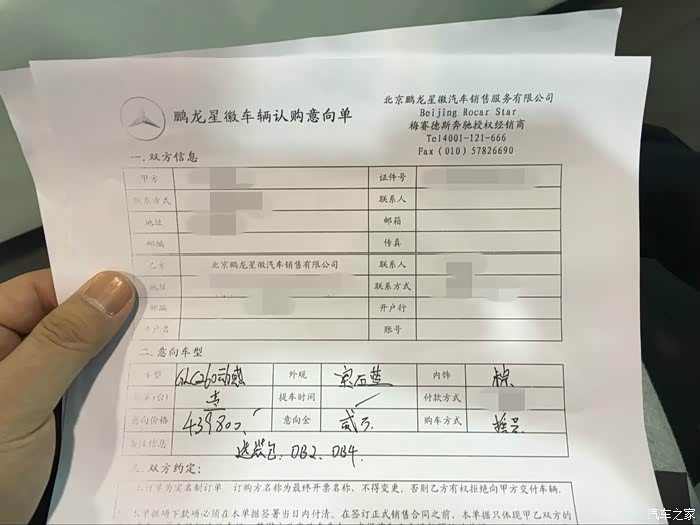 鹏龙星徽车辆认购意向单
北京鹏龙星徽汽车销售服务有限公司
Beijing Rocar Star
梅赛德斯奔驰授权经销商
Tel4001-121-666
Fax (010) 57826690
一.双方信息
甲方 证件号
联系方式 联系人
地址 邮箱
邮编 传真
乙方 北京鹏龙星徽汽车销售有限公司 联系人
地址 联系方式
邮编 开户行
开户名 账号
二.意向车型
车型 GLC260动感 外观 宝石蓝 内饰 棕
提车时间 付款方式
意向价格 439800 意向金 贰万 购车方式
备注信息 选装包、DB2、DB4
三.双方约定:
本订单为实名制订单 订购方名称为最终开票名称, 不得变更, 否则乙方有权拒绝向甲方交付车辆.
本单据项下款项必须在本单据签署当日内付清, 在签订正式销售合同之前, 本单据只体现甲乙双方的
汽车之家